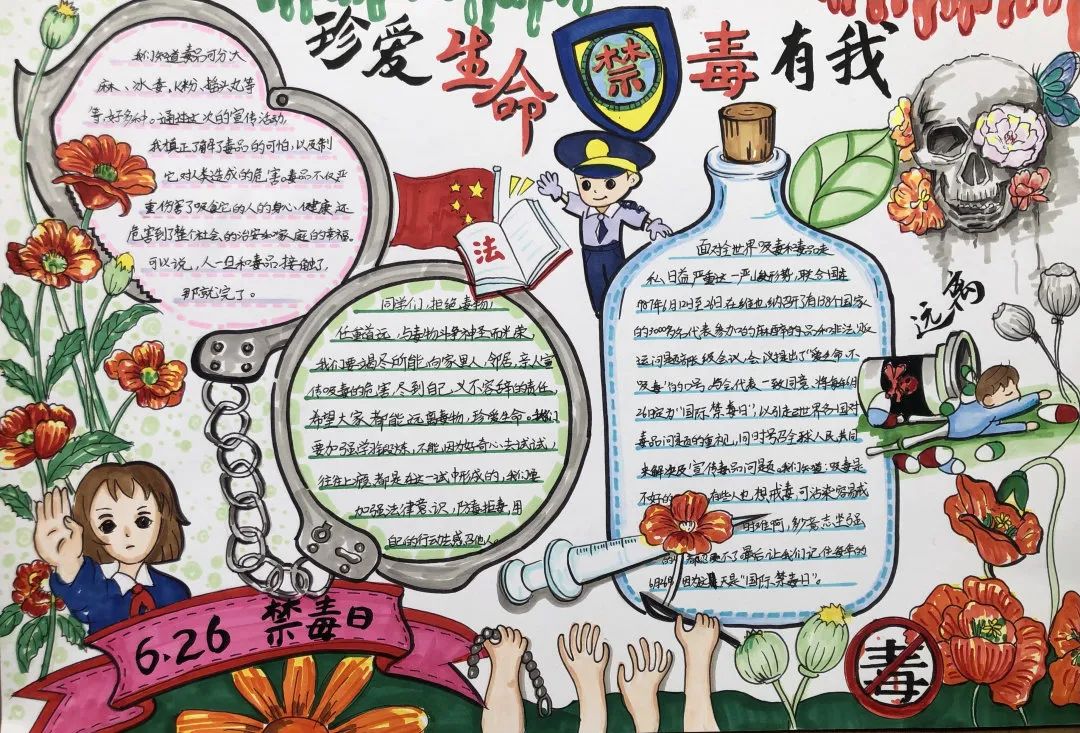 珍爱生命 禁毒有我
禁
我们知道毒品可分大
麻、冰毒、K粉、摇头丸等
等好多种。通过这次的宣传活动,
我真正了解了毒品的可怕,以及制
它对人类造成的危害。毒品不仅严
重伤害了吸食它的人的身心健康,还
危害到了整个社会的治安和家庭的幸福。
可以说,人一旦和毒品接触了,
那就完了。
法
同学们,拒绝毒物!
任重道远,与毒物斗争神圣而光荣
我们要竭尽所能,向家里人、邻居、亲人宣
传吸毒的危害,尽到自己义不容辞的责任,
希望大家都能远离毒物,珍爱生命。我们
要加强学习锻炼,不能因为好奇心去试试!
往往上瘾都是在这一试中形成的,我们要
加强法律意识,防毒拒毒,用
自己的行动生感及他人。
面对全世界吸毒和毒品走
私日益严重这一严峻形势,联合国在
1987年6月12日至26日在维也纳召开了有138个国家
的3000多名代表参加的麻醉
运问题部长级会议,会议提出了“爱生命,不
吸毒”的口号。与会代表一致同意,将每年6月
26日定为“国际禁毒日”,以引起世界各国对
毒品问题的重视,同时号召全球人民共同
来解决及宣传毒品问题。我们知道:吸毒是
不好的 有些人也想戒毒,可沾染容易戒
时难啊,多少意志坚强
的 都 不了 最后让我们记住每年的
6月26 因为这 天是“国际禁毒日”。
远离
6.26 禁毒日
毒